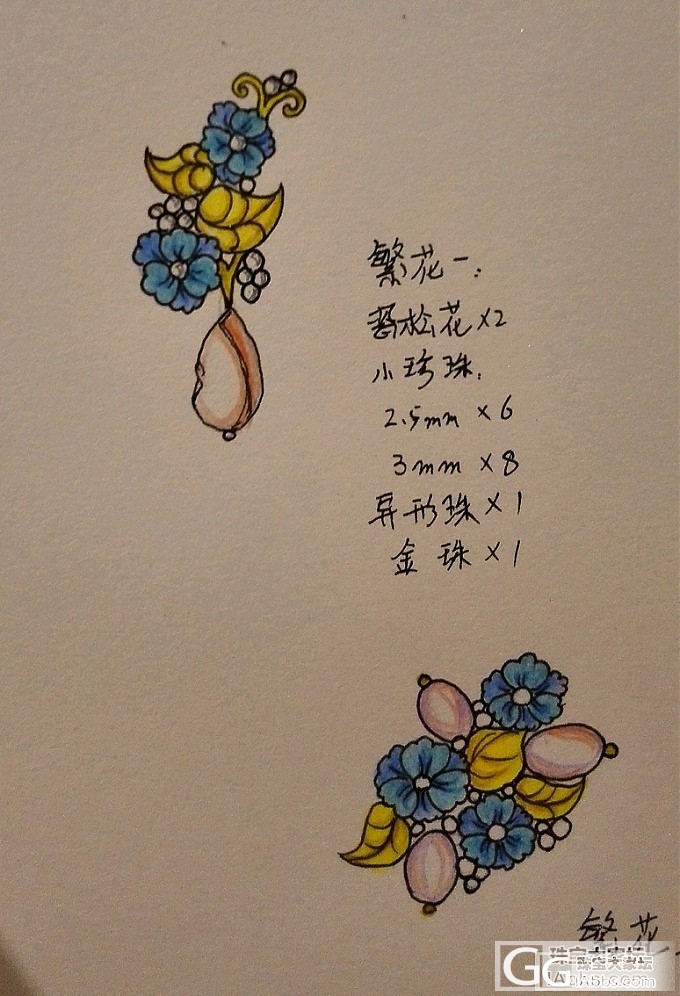 繁花一:
绿松花×2
小珍珠:
2.5mm ×6
3mm ×8
异形珠×1
金珠×1
繁花
GG 珠宝大家坛